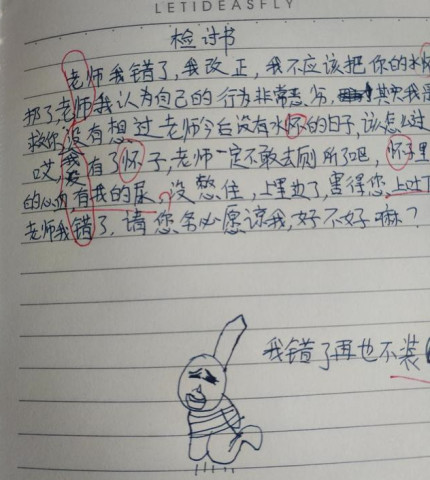 LETIDEASFLY
检讨书
老师我错了,我改正,我不应该把你的水怀
那了老师我认为自己的行为非常恶劣,其实我是
救你,没有想过老师今后没有水怀的日子,该怎么过
哎,我没有了怀子,老师一定不敢去厕所了吧,怀子里
的心内有我的尿,没憋住,上里边了,害得您上吐下
老师我错了,请您务必愿谅我,好不好嘛?
我错了再也不装